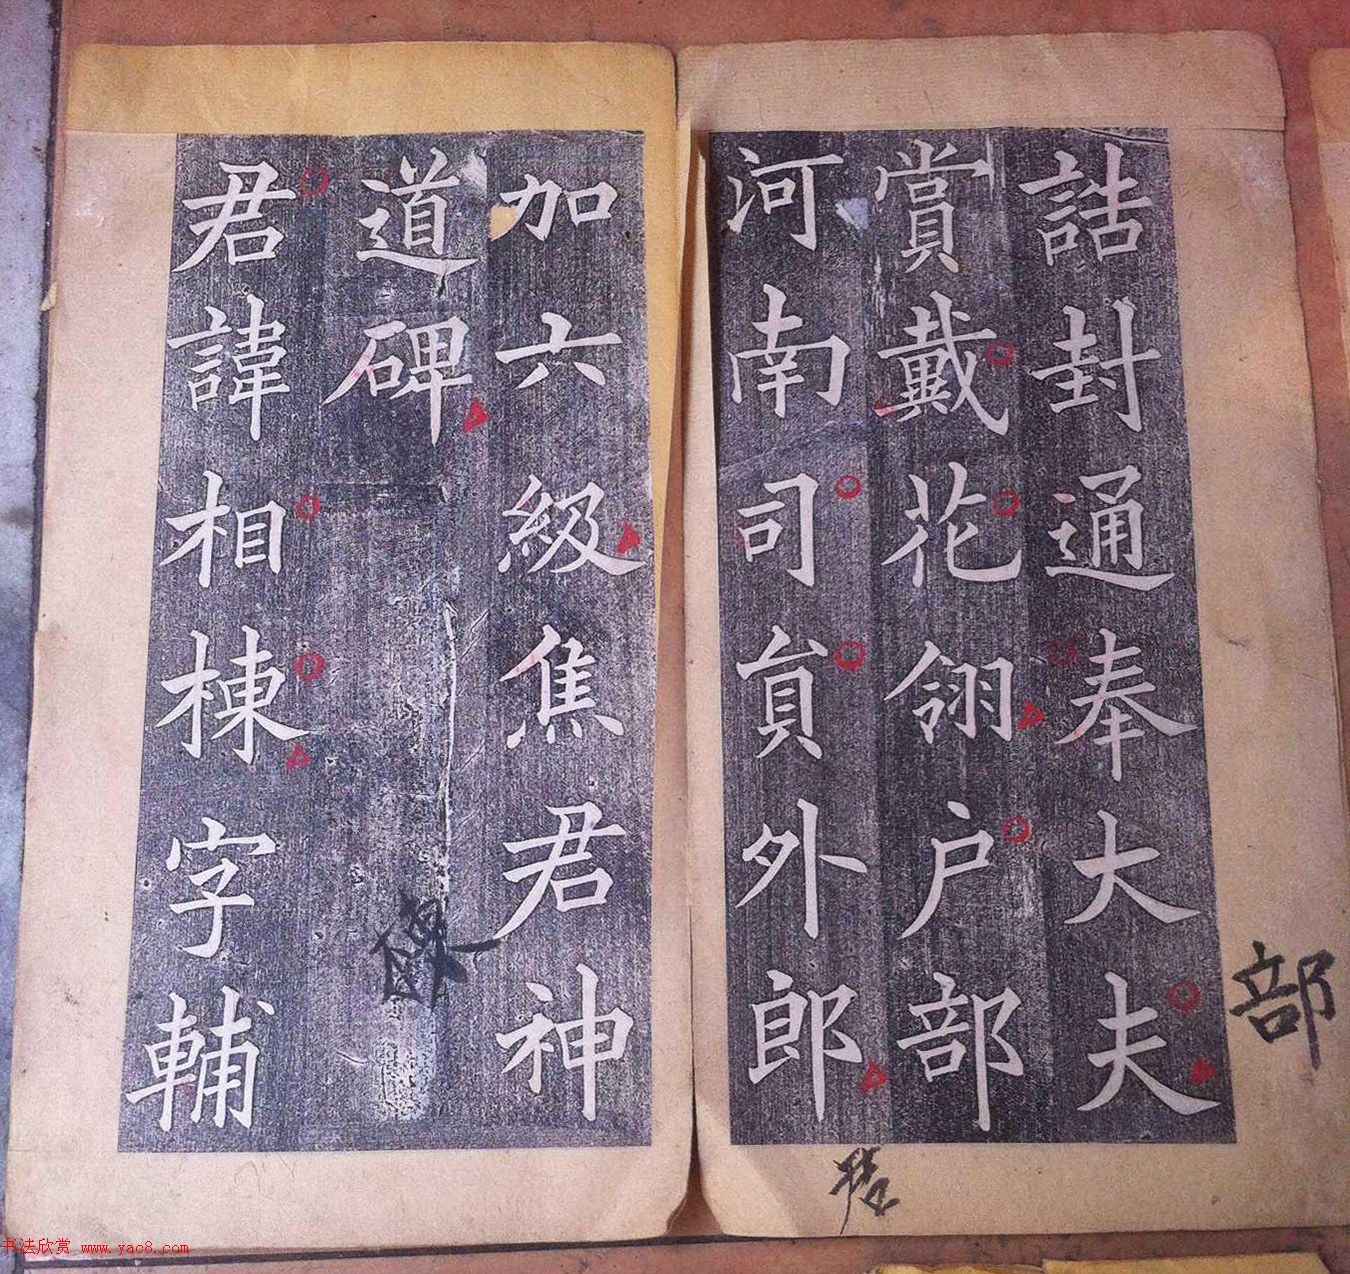 誥封通奉大夫
賞戴花翎户部
河南司貟外郎
加六級焦君神
道碑
君諱相棟字輔
部
书法欣赏 www.yac8.com